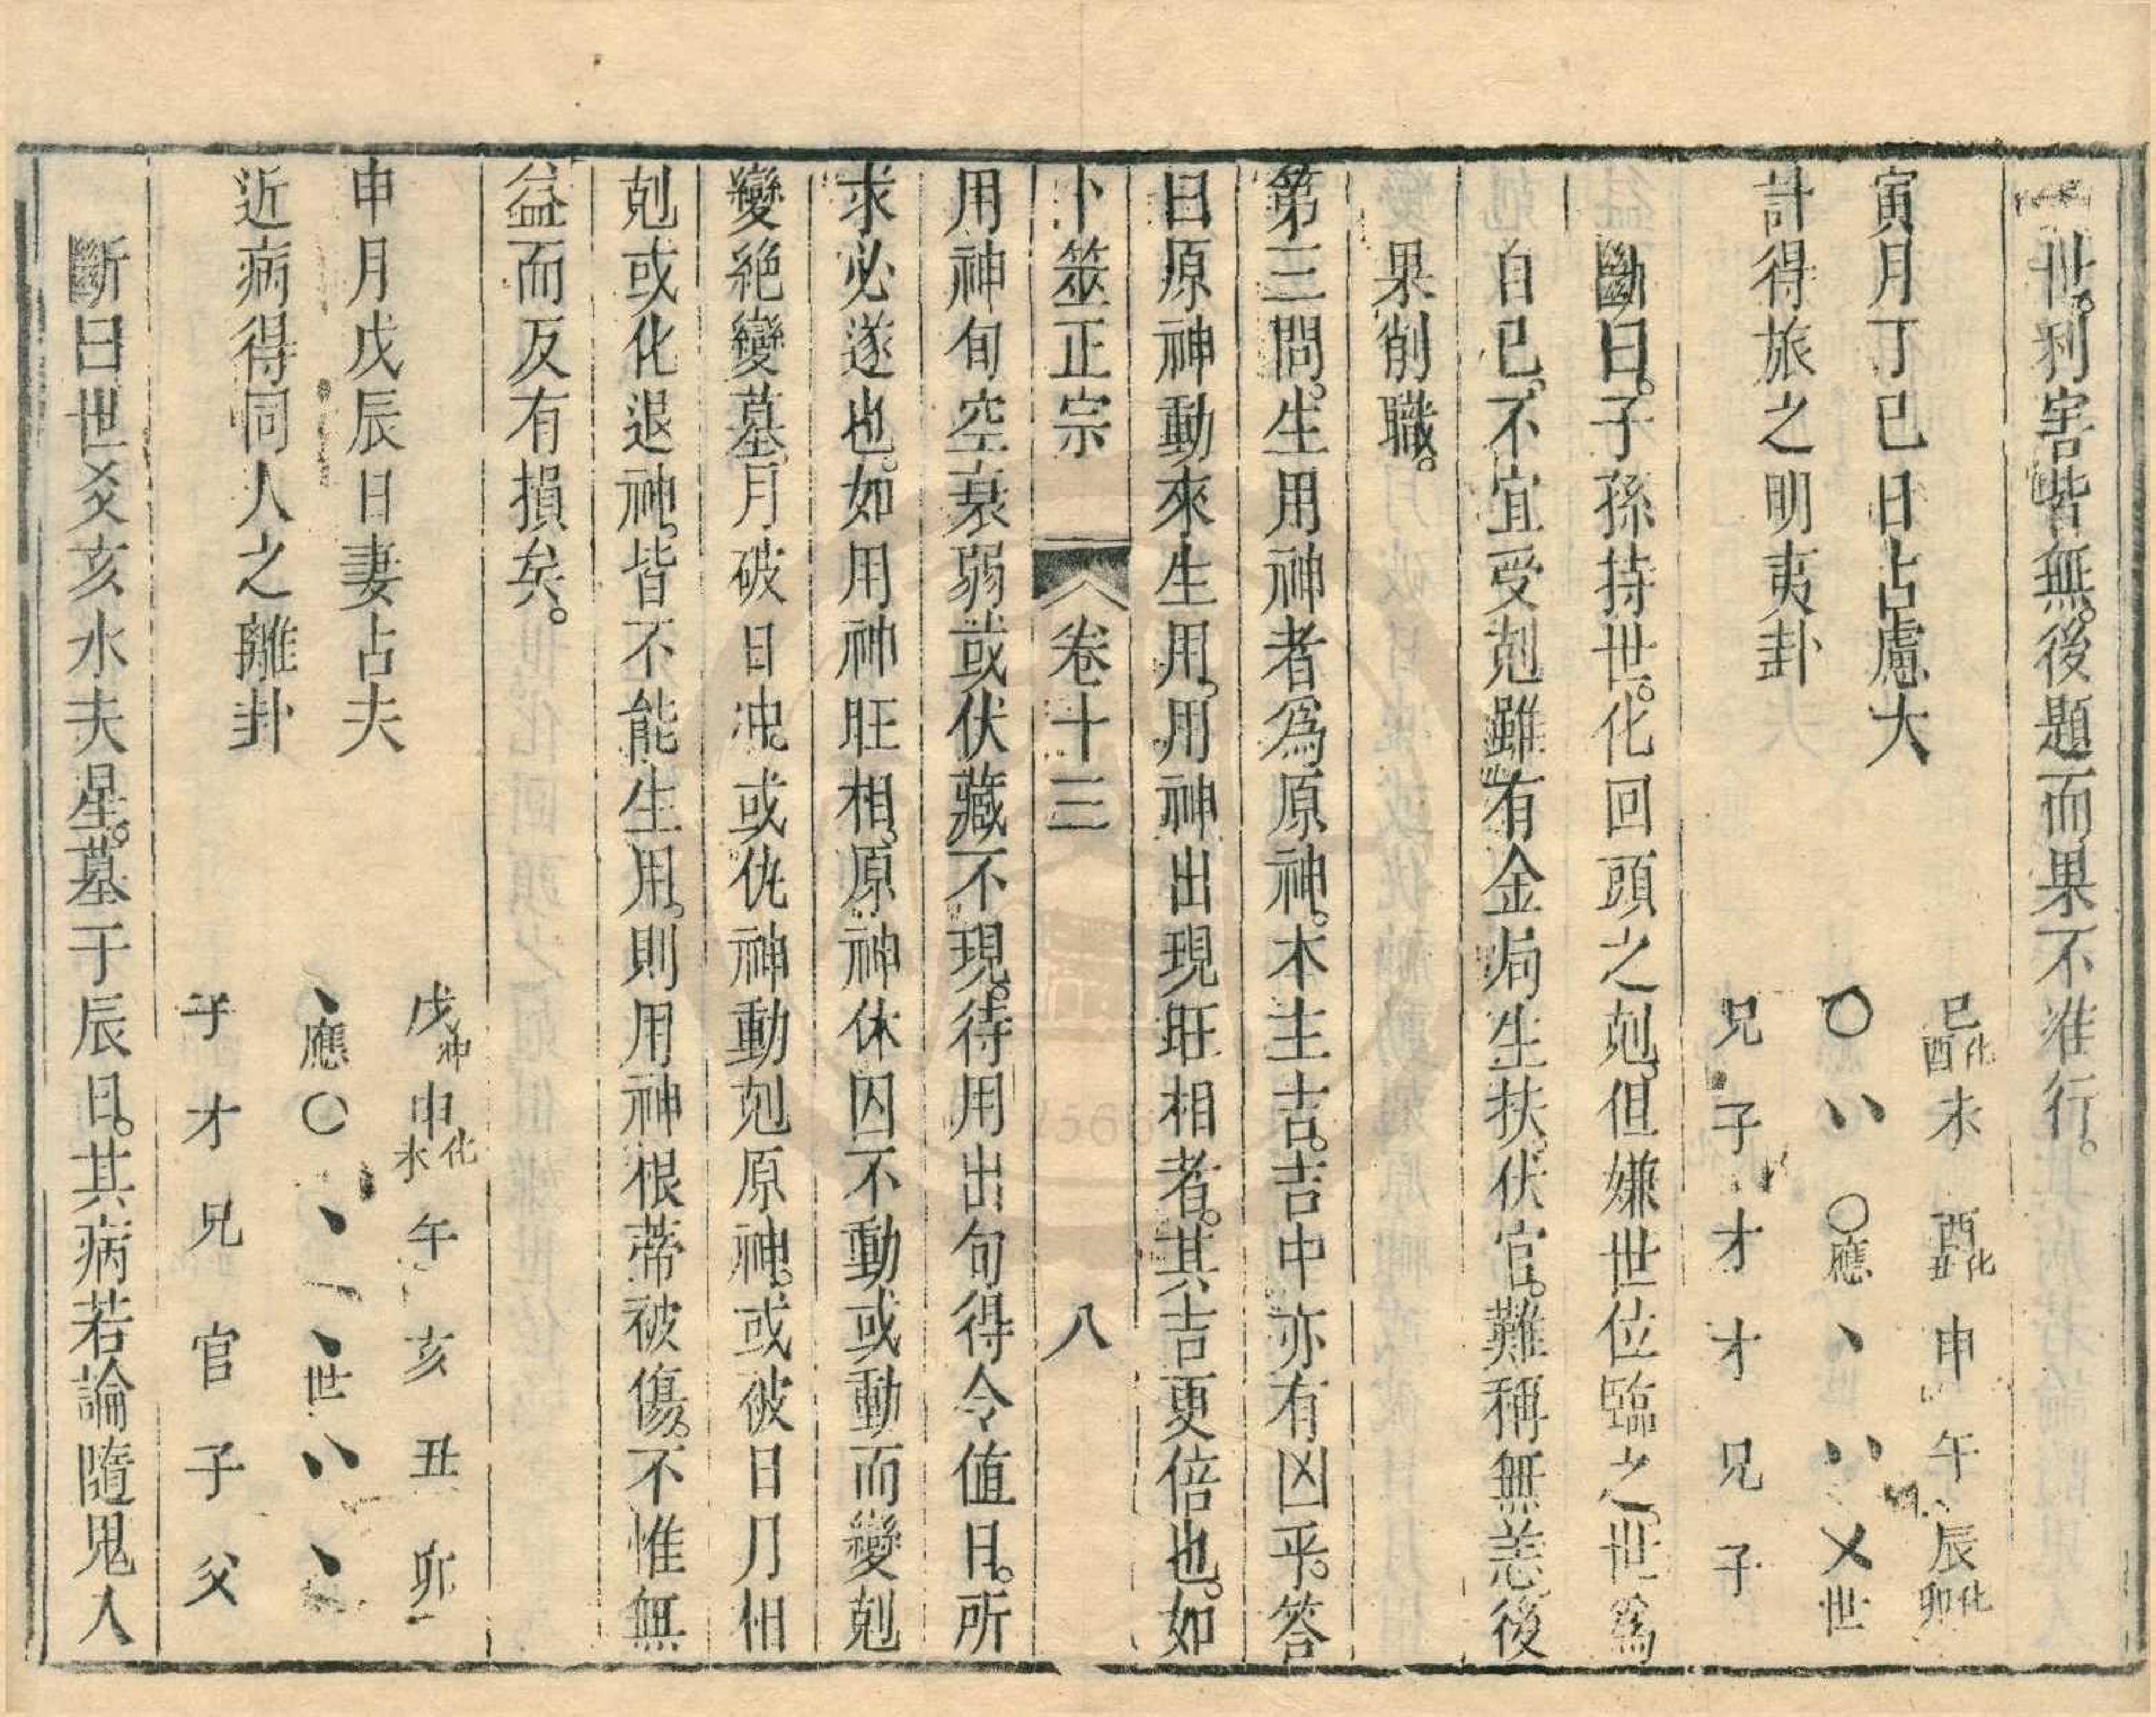 世。利害皆無。後題而果不准行。
寅月丁巳日占慮大
計得旅之明夷卦
巳化酉 未 酉化丑 申 午 辰化卯
〇 〃 〇應 丶 〃 乂世
兄 子 才 才 兄 子
斷曰。子孫持世。化回頭之剋。但嫌世位臨之。世爲
自己。不宜受剋。雖有金局生扶。伏官。難稱無恙。後
果削職。
第三問。生用神者爲原神。本主吉。吉中亦有凶乎。答
曰原神動來生用。用神出現旺相者。其吉更倍也。如
卜筮正宗 卷十三 八
用神旬空衰弱或伏藏不現。待用出旬得令值日。所
求必遂也。如用神旺相。原神休囚不動或動而變剋
變絶變墓。月破日冲。或仇神動剋原神。或被日月相
剋或化退神。皆不能生用。則用神根蒂被傷。不惟無
益而反有損矣。
申月戊辰日妻占夫
近病得同人之離卦
戌冲 申化未 午 亥 丑 卯
丶應 〇 丶 丶世 〃 丶
子 才 兄 官 子 父
斷曰世爻亥水夫星。墓于辰日。其病若論隨鬼人